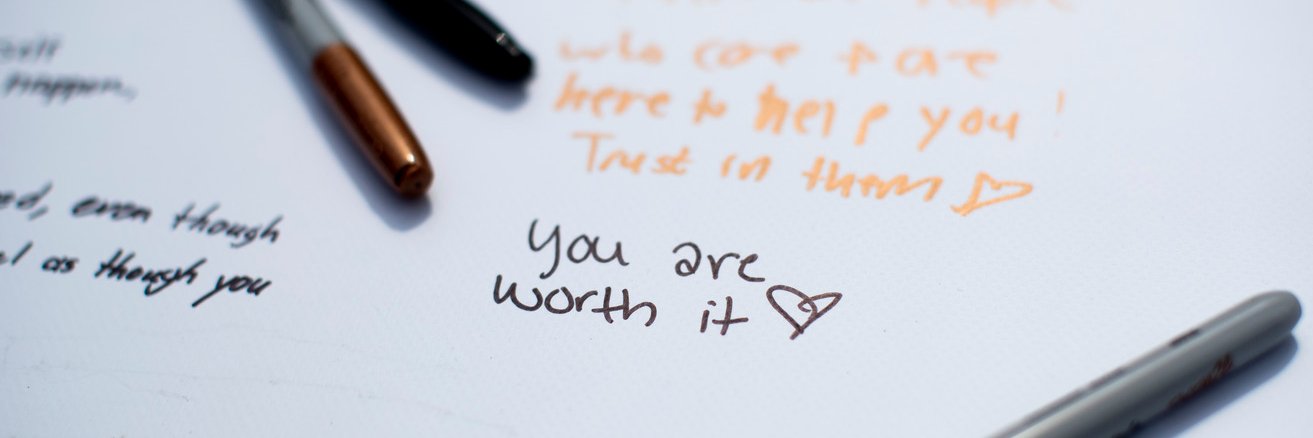 self
happen,
ed, even though
as though you
people
who care + are
here to help you!
Trust in them
you are
worth it